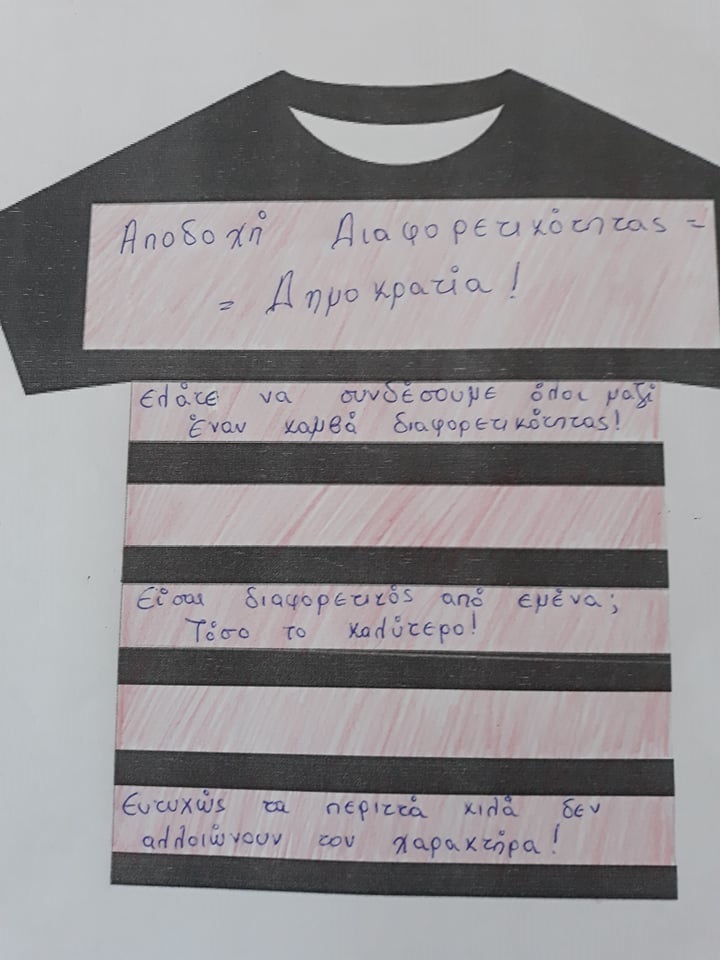 Αποδοχή Διαφορετικότητας =
= Δημοκρατία!
Ελάτε να συνδέσουμε όλοι μαζί
έναν καμβά διαφορετικότητας!
Είσαι διαφορετικός από εμένα;
Τόσο το καλύτερο!
Ευτυχώς τα περιττά κιλά δεν
αλλοιώνουν τον χαρακτήρα!